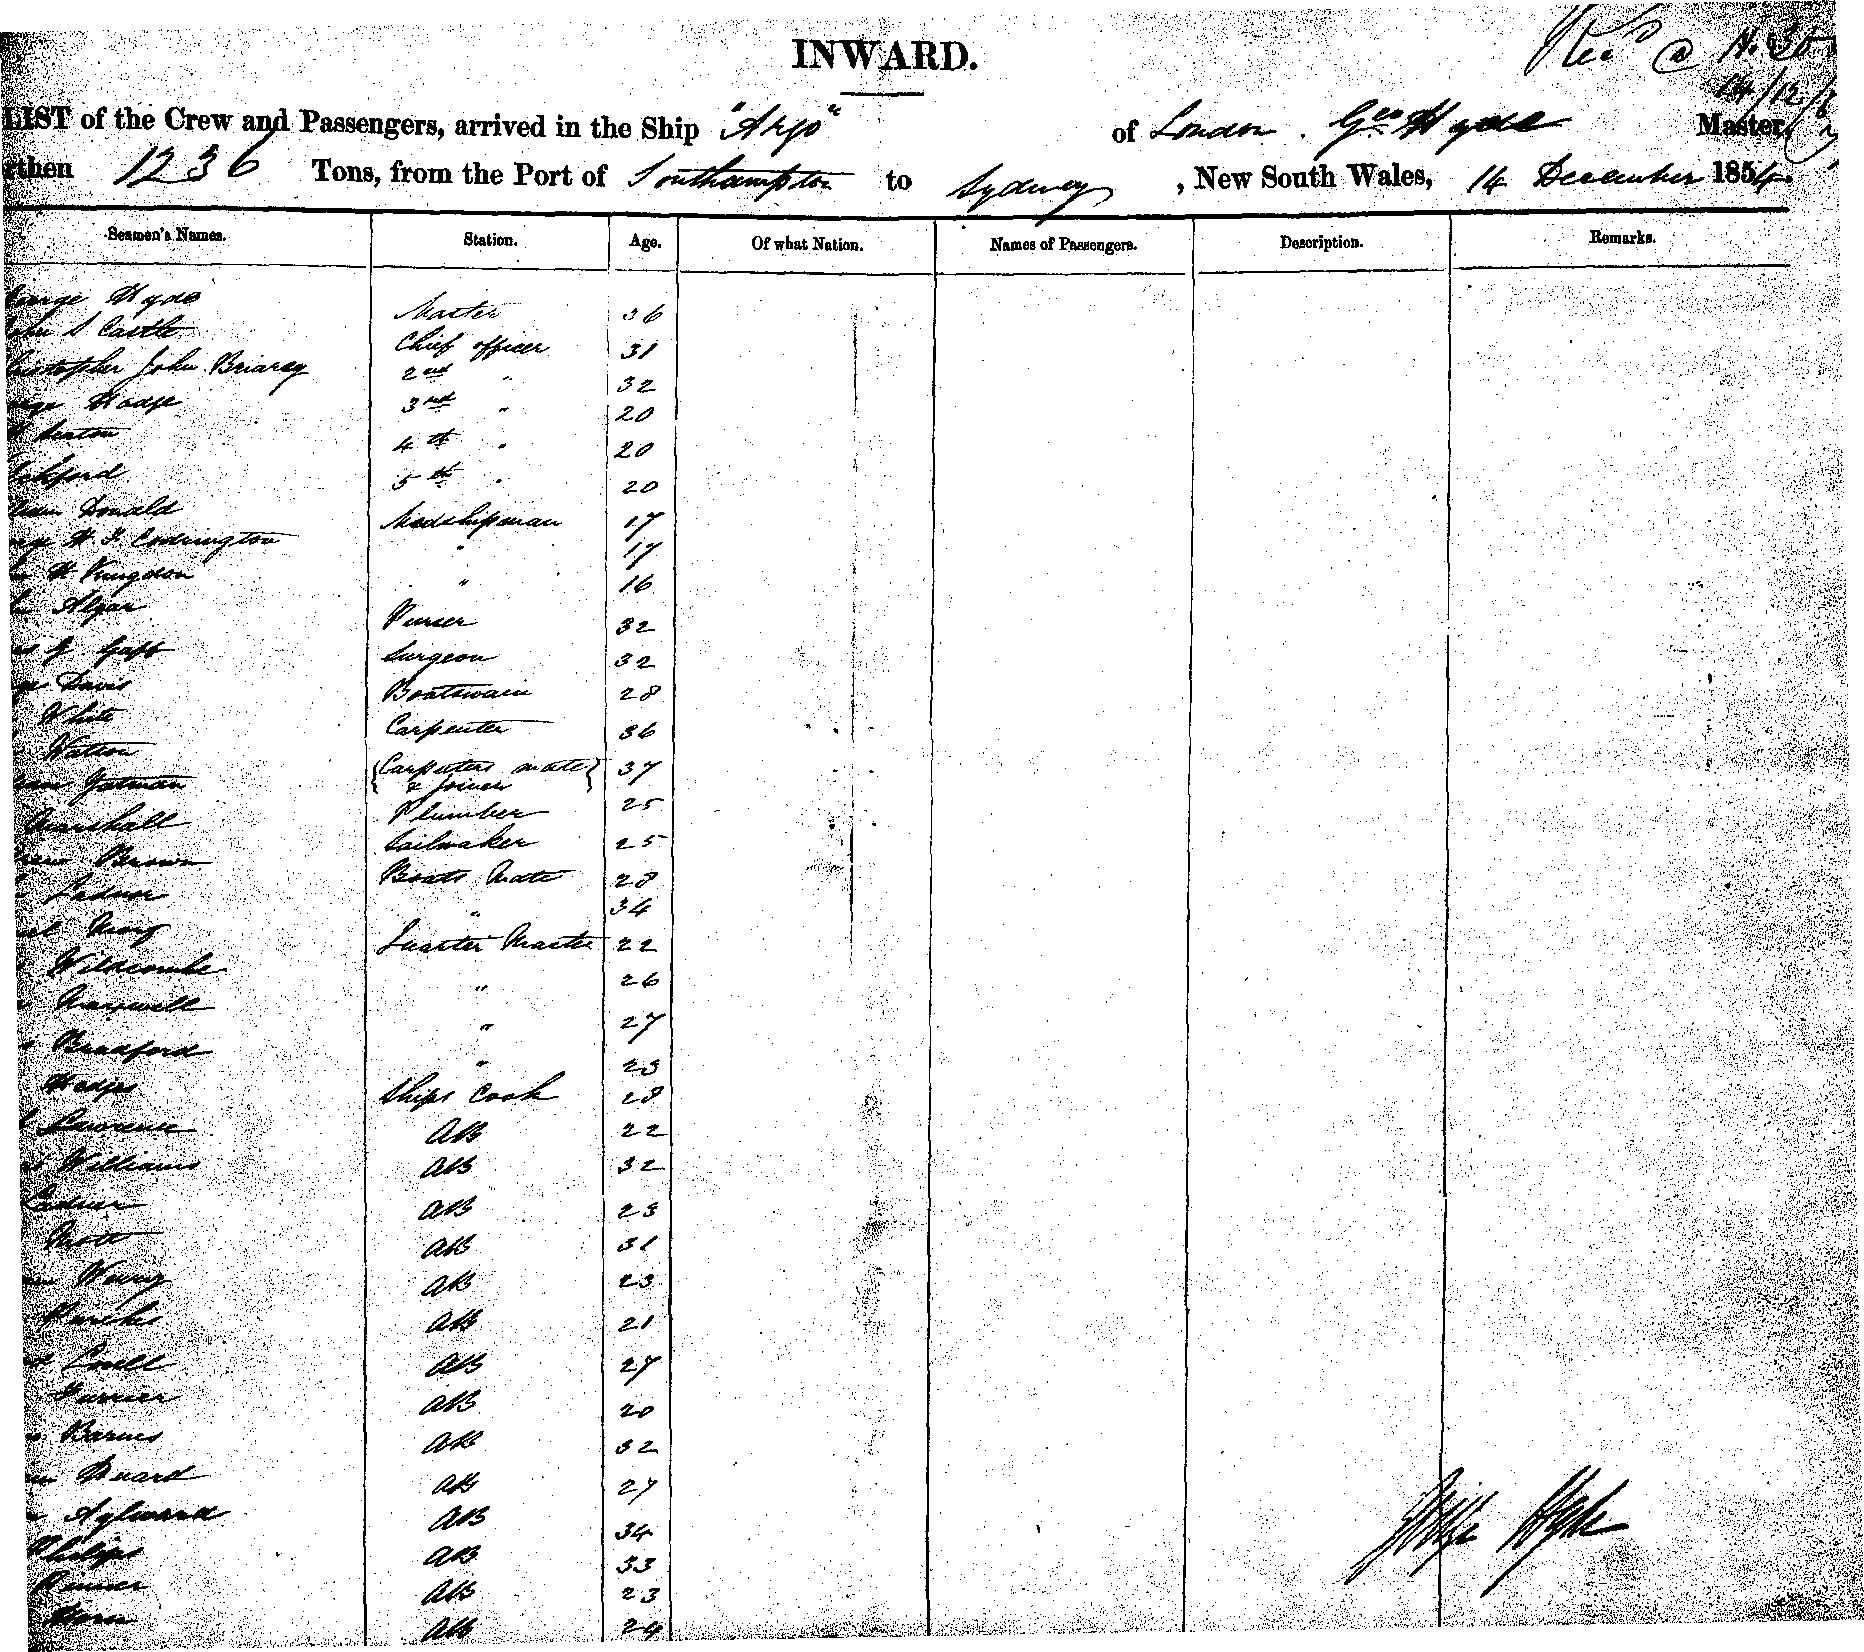 INWARD.
LIST of the Crew and Passengers, arrived in the Ship "Argo" of London. Geo Hyde Master,
rthen 1236 Tons, from the Port of Southampton to Sydney, New South Wales, 14 December 1854.
Seamen's Names. Station. Age. Of what Nation. Names of Passengers. Description. Remarks.
eorge Hyde Master 36
ohn S Castle Chief officer 31
ristopher John 2nd " 32
orge Hodge 3rd " 20
4th " 20
ckford 5th " 20
Donald Midshipman 17
H. F. Codrington " 17
H Kingdon " 16
Algar Purser 32
J Surgeon 32
Davis Boatswain 28
White Carpenter 36
Watson {Carpenters mate & Joiner} 37
Plumber 25
Marshall Sailmaker 25
Brown Boats Mate 28
Ladner " 34
King Quarter Master 22
Widdcombe " 26
Maxwell " 27
Bradford " 23
Hodges Ships Cook 28
Lawrence AB 22
Williams AB 32
AB 23
Mott AB 31
AB 23
AB 21
AB 27
AB 20
Barnes AB 32
Huard AB 27
Aylward AB 34
Philips AB 33
AB 23
Horn AB 24
George Hyde